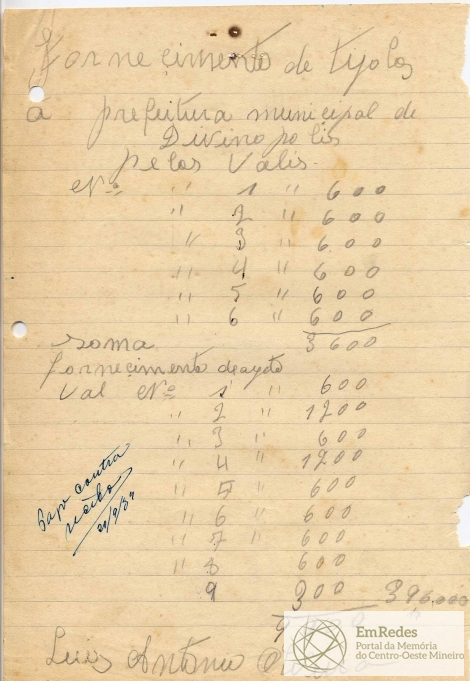 Fornecimento de tijolos
a prefeitura municipal de
Divinopolis
pelos Valis.
Nº " 1 " 600
" 2 " 600
" 3 " 600
" 4 " 600
" 5 " 600
" 6 " 600
soma 3600
fornecimento de
Val Nº 1 " 600
" 2 " 1200
" 3 " 600
" 4 " 1200
" 5 " 600
" 6 " 600
" 7 " 600
" 8 600
9 300 396.000
Pago contra
recibo
Luis Antonio
EmRedes
Portal da Memória
do Centro-Oeste Mineiro